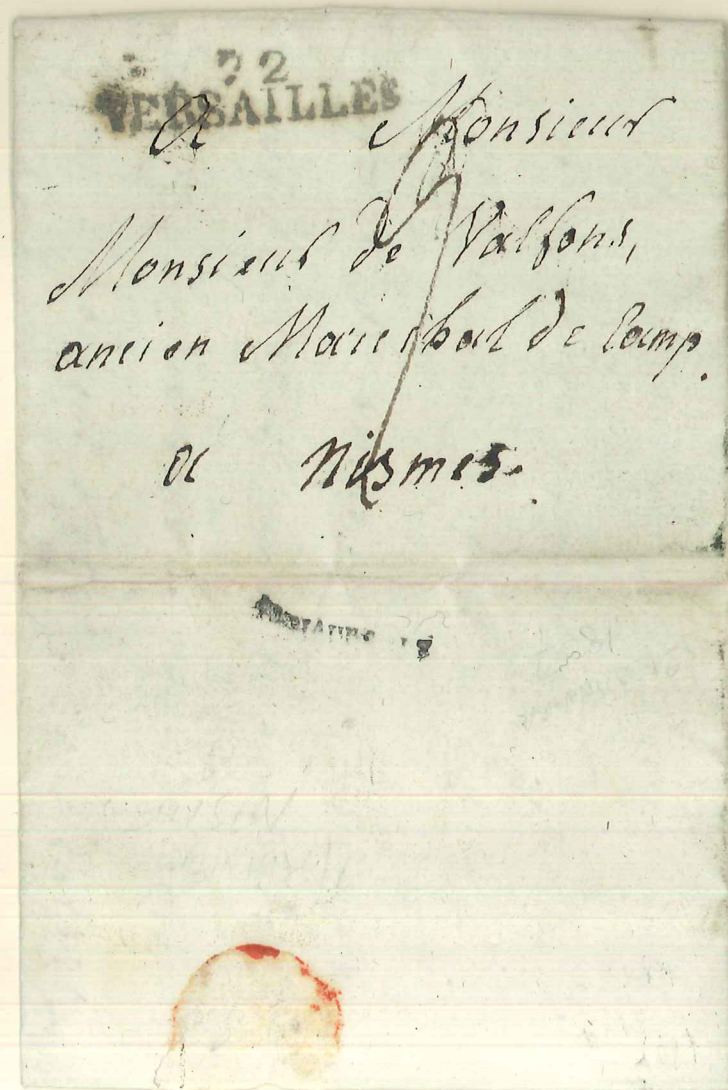 72
VERSAILLES
A Monsieur
Monsieur de Valfons,
ancien Marechal de Camp.
a Nismes.